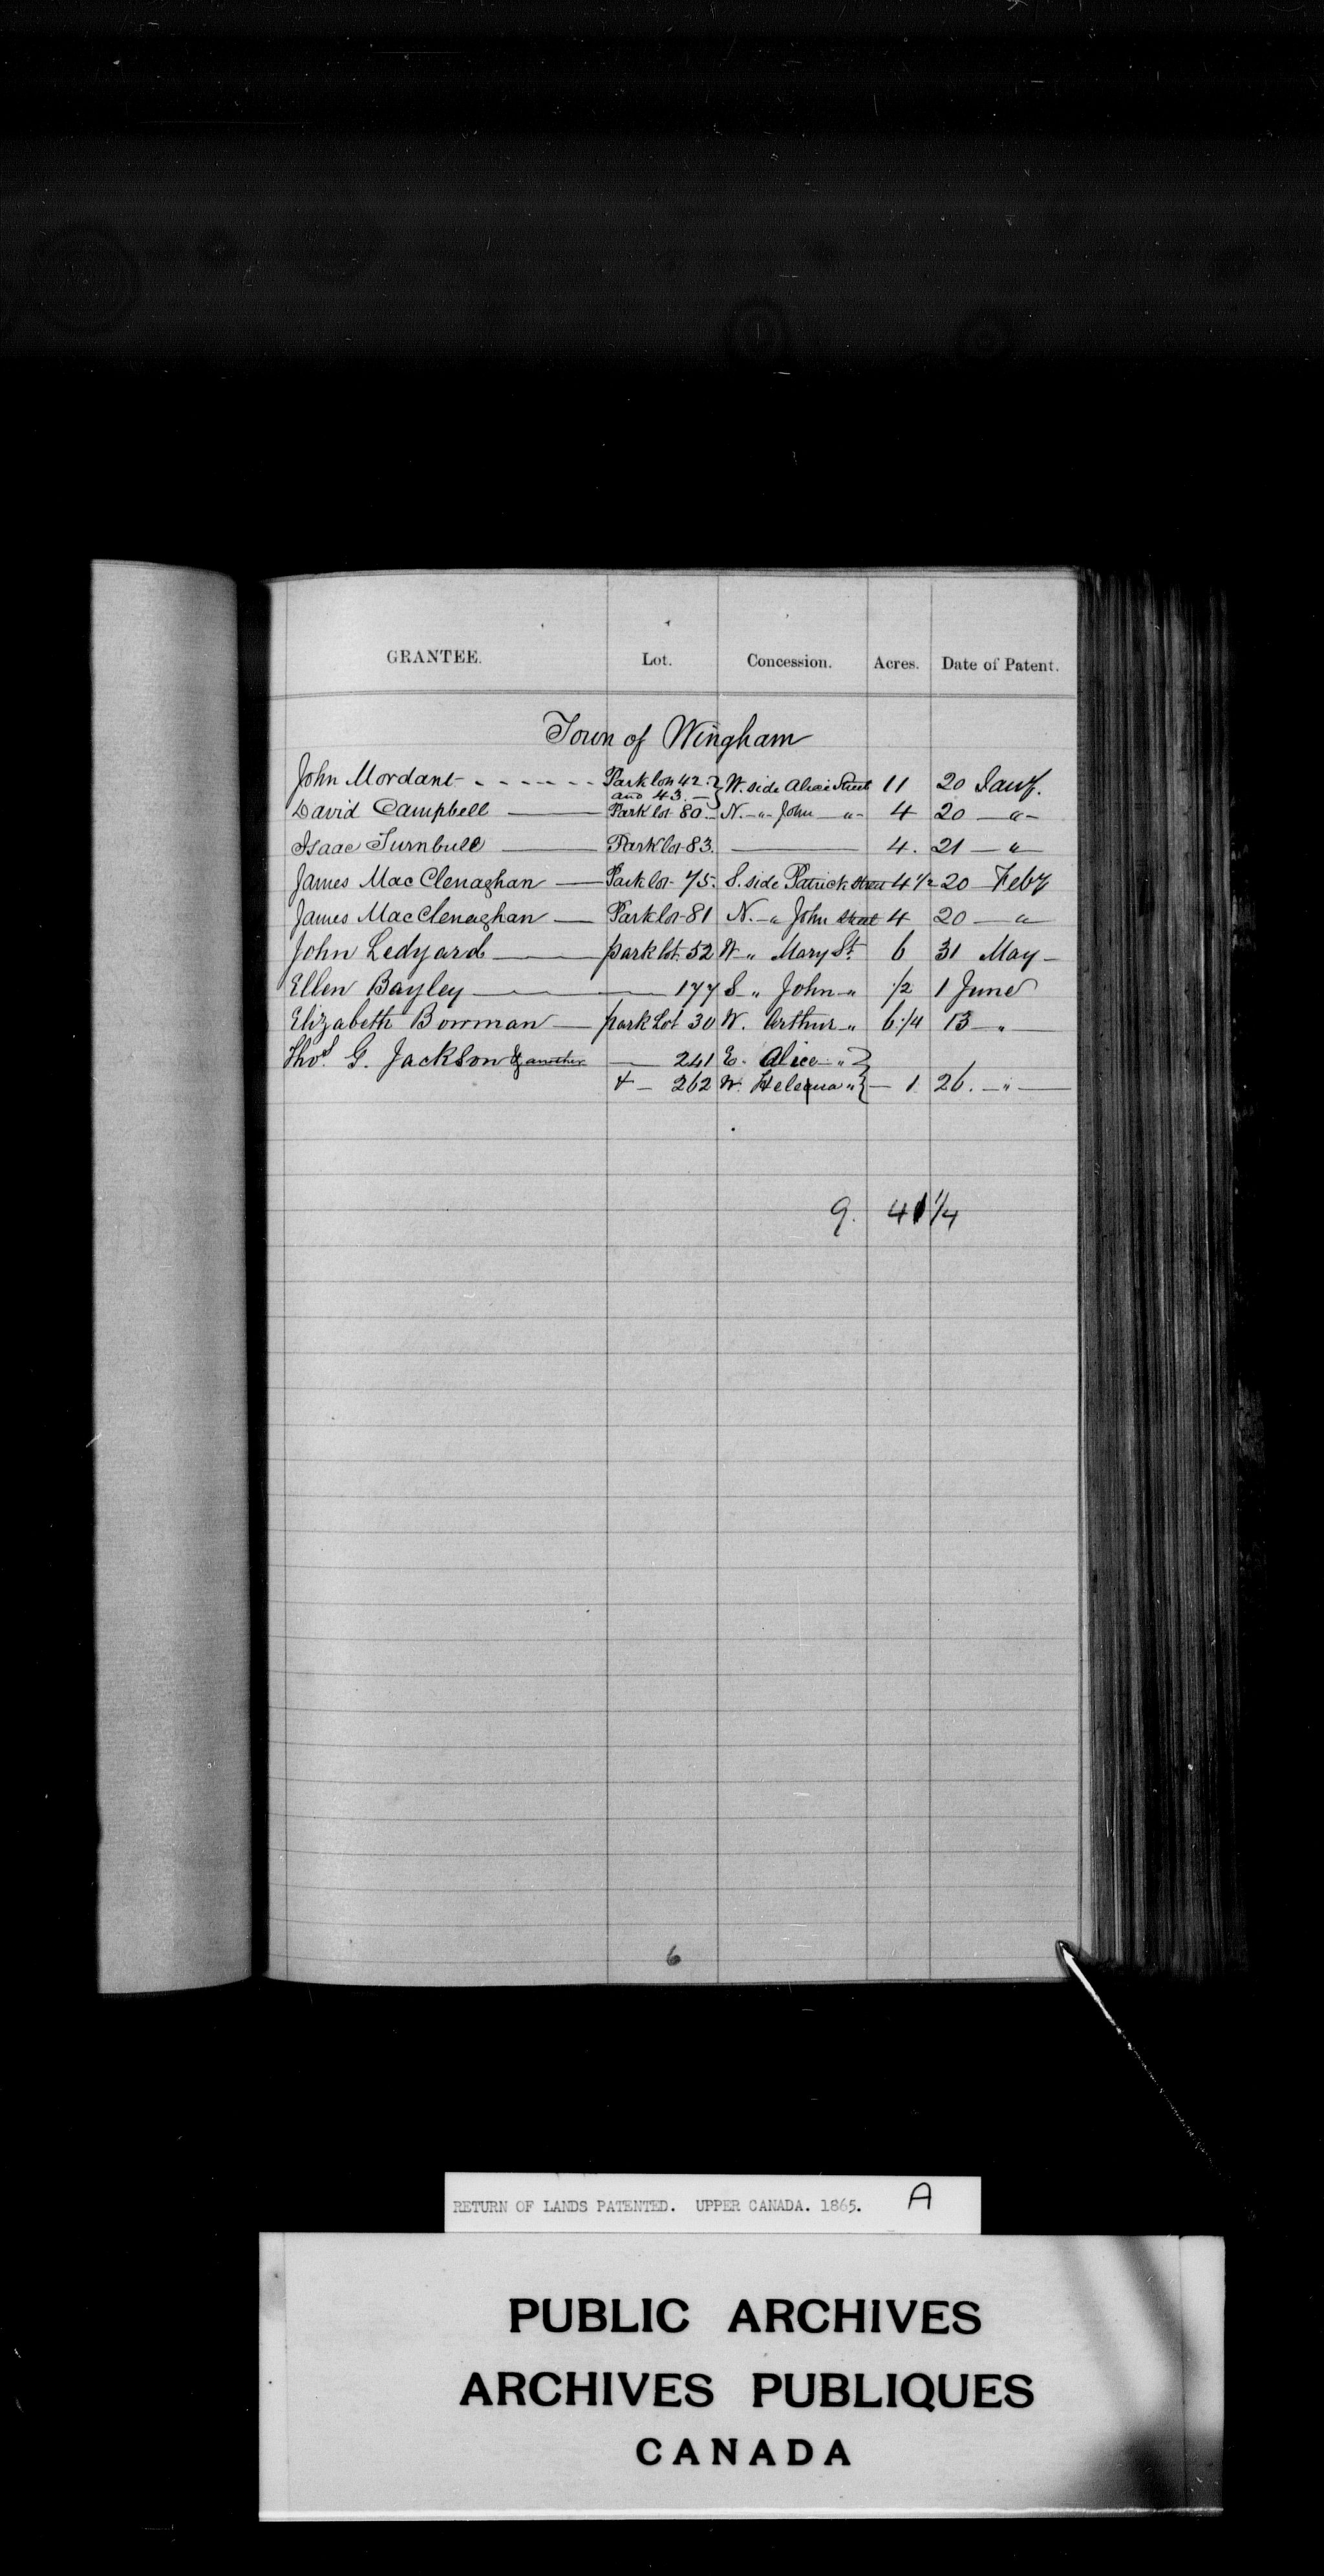 GRANTEE. Lot. Concession. Acres. Date of Patent.
Town of Wingham
John Mordant - - - - - - Park lots 42. } W. side Alice Street 11 20 Jany.
and 43. —
David Campbell — Park lot 80. — N. - " - John — " - 4 20 — " -
Isaac Turnbull — Park lot 83. — 4. 21 — "
James MacClenaghan — Park lot 75. S. side Patrick Street 4 1/2 20 Feby
James MacClenaghan — Park lot 81 N. - " John Street 4 20 — "
John Ledyard — park lot. 52 W " Mary St. 6 31 May -
Ellen Bayley — 177 S " John " 1/2 1 June
Elizabeth Bowman — park Lot 30 W. Arthur " 6 1/4 13 "
Thos. G. Jackson & another — 241 E. Alice " }
& — 262 W. " } — 1 26. — " —
9. 41 1/4
6
RETURN OF LANDS PATENTED. UPPER CANADA. 1865. A
PUBLIC ARCHIVES
ARCHIVES PUBLIQUES
CANADA